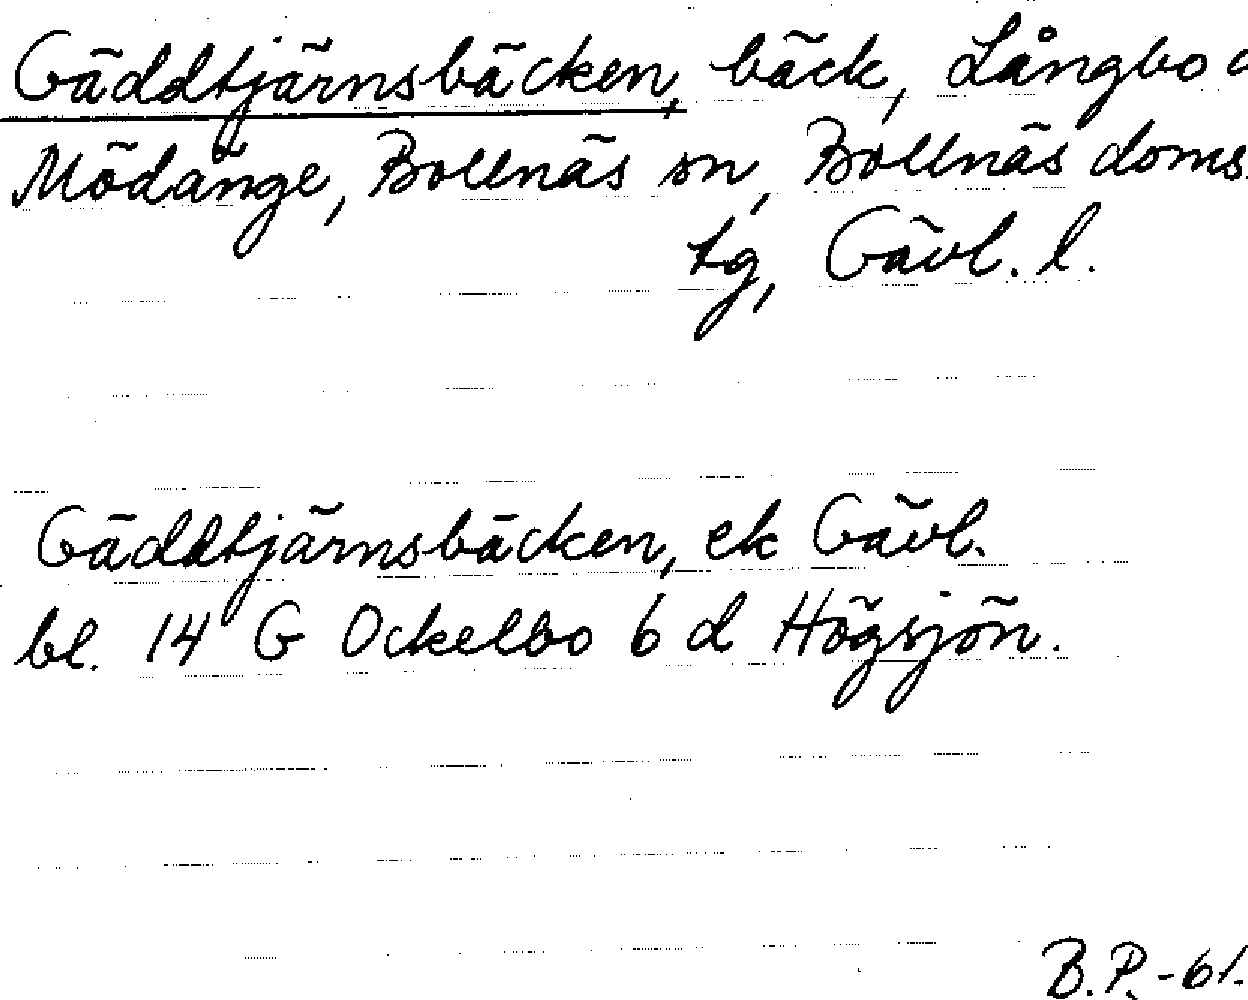 Gäddtjärnsbäcken, bäck, Långbo o
Mödänge, Bollnäs sn, Bollnäs doms.
tg, Gävl. l.
Gäddtjärnsbäcken, ek Gävl.
bl. 14 G Ockelbo 6 d Högsjön.
B.P.-61.